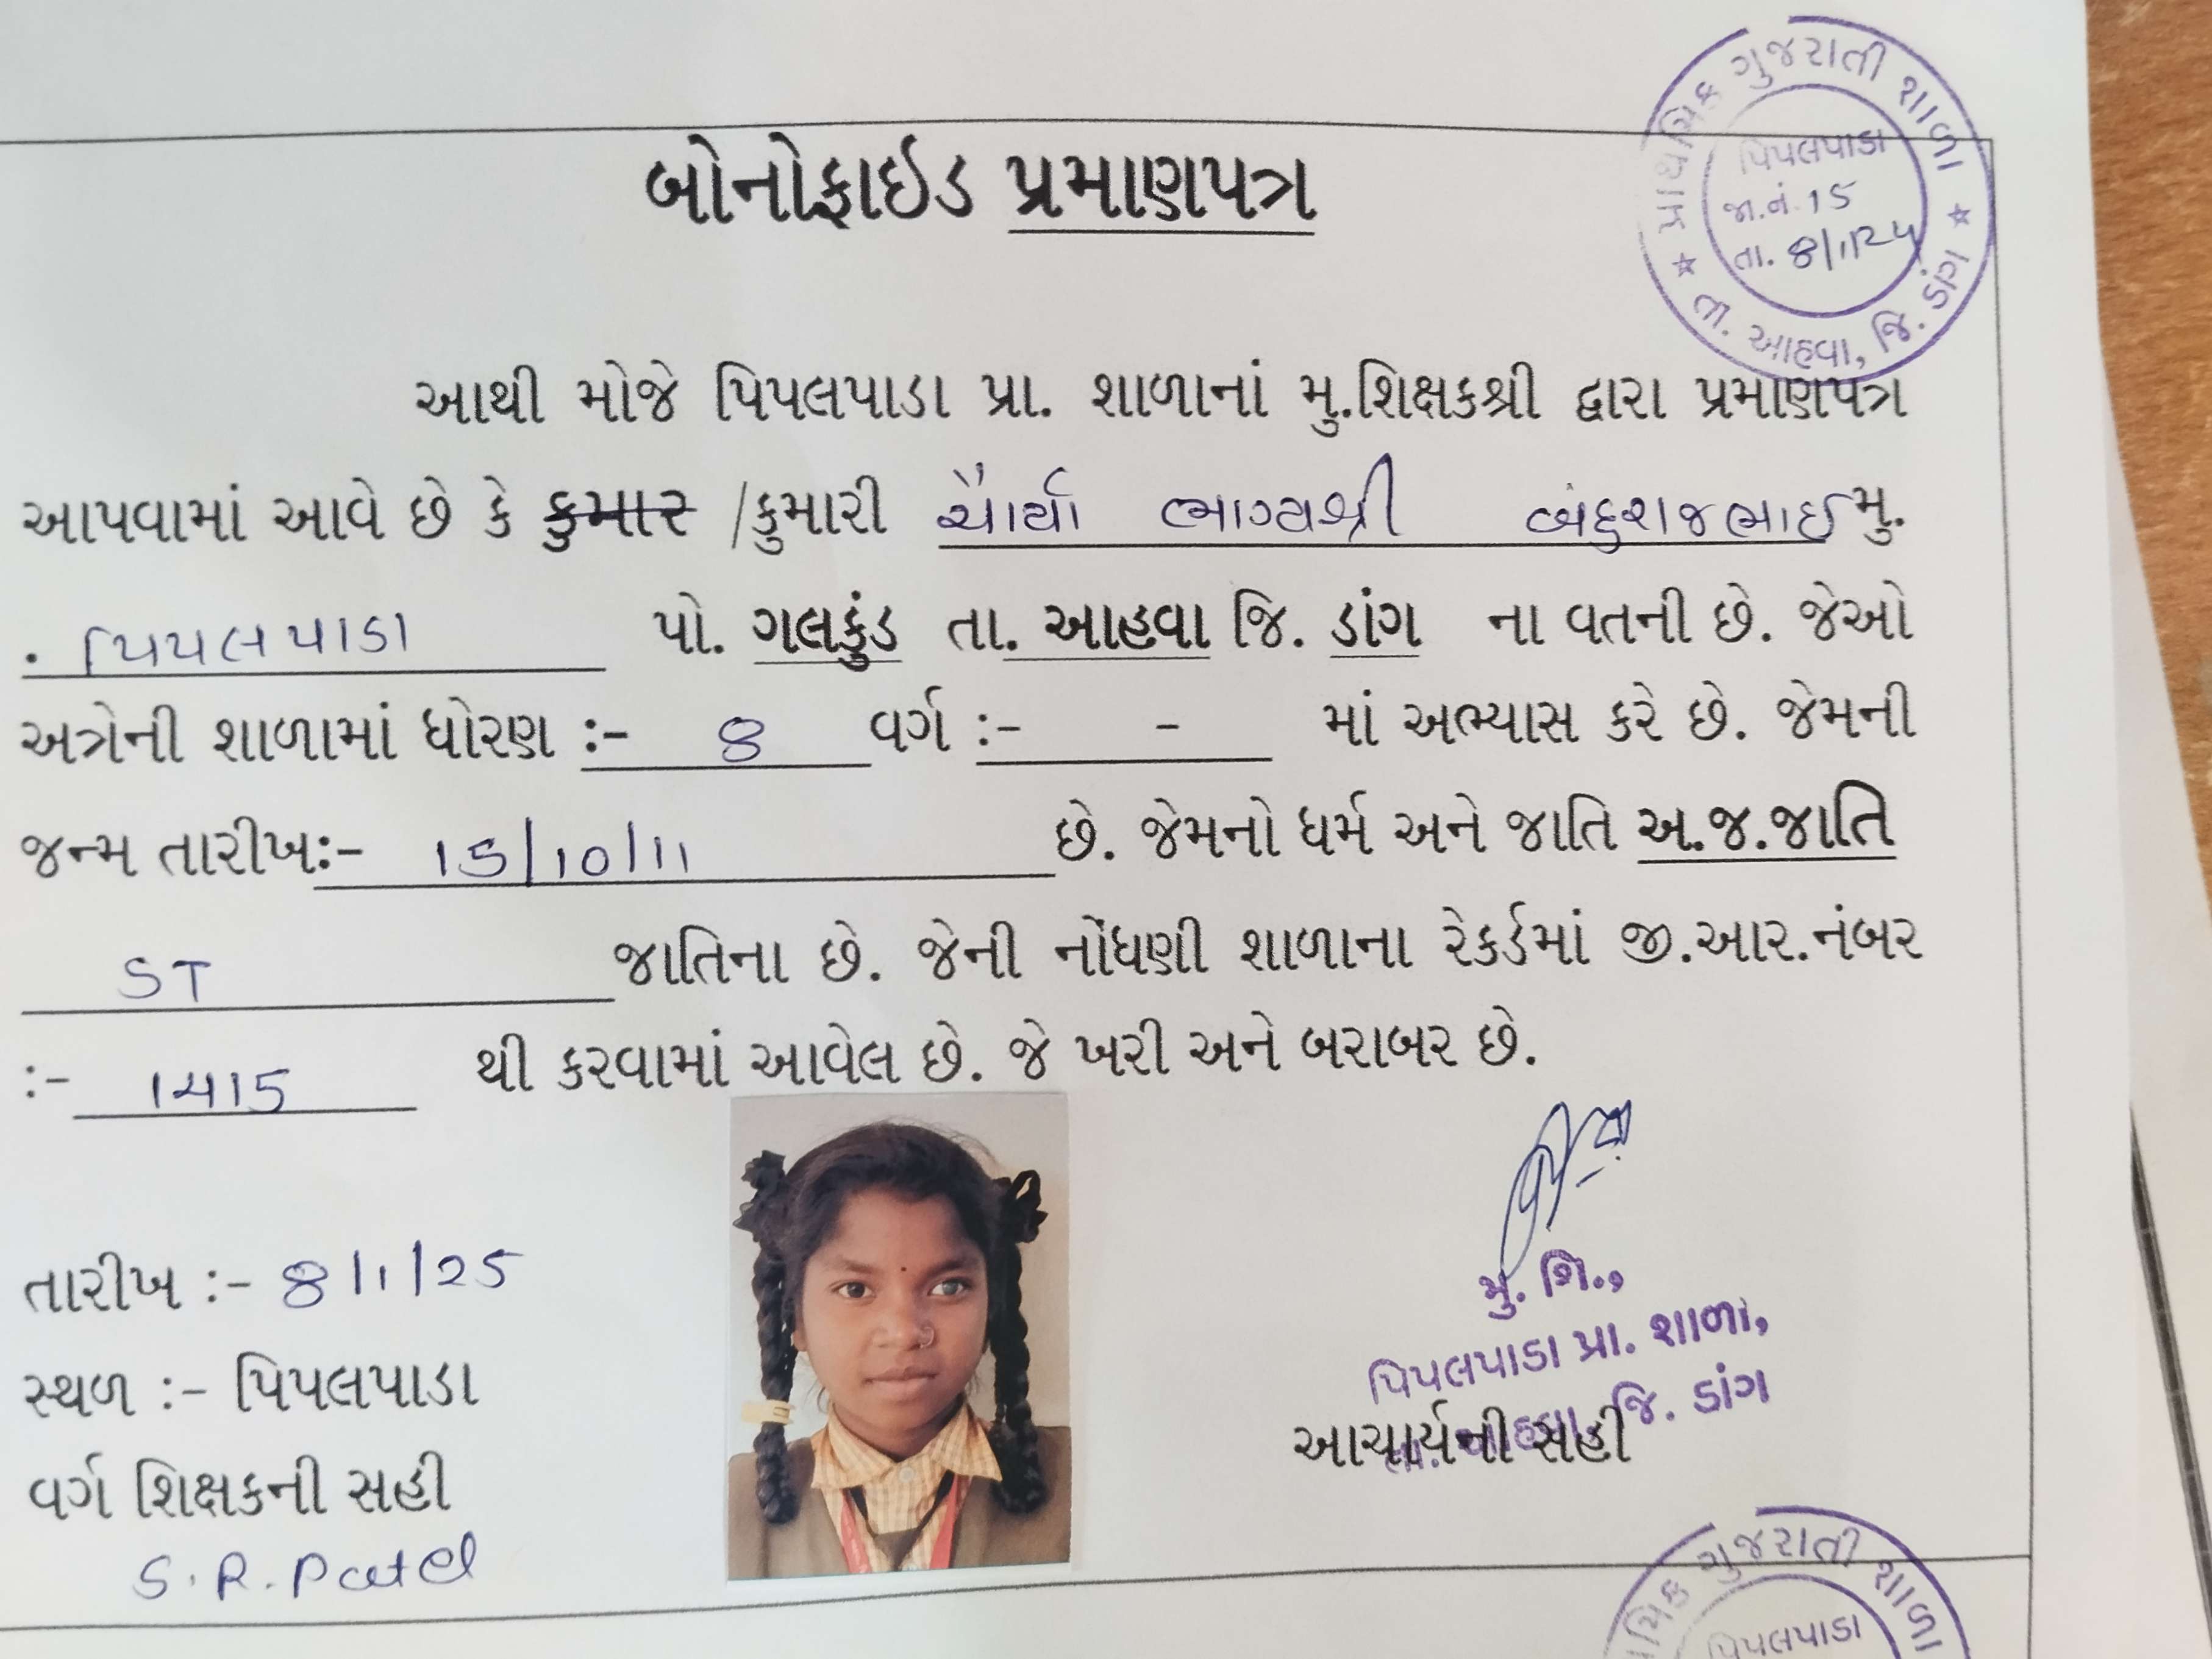 પ્રાથમિક ગુજરાતી શાળા
પિપલપાડા
જા.નં. 15
તા. 8/1/25
★ તા. આહવા, જિ. ડાંગ ★
બોનોફાઈડ પ્રમાણપત્ર
આથી મોજે પિપલપાડા પ્રા. શાળાનાં મુ.શિક્ષકશ્રી દ્વારા પ્રમાણપત્ર
આપવામાં આવે છે કે કુમાર /કુમારી ભાગ્યશ્રી મુ.
. પિપલપાડા પો. ગલકુંડ તા. આહવા જિ. ડાંગ ના વતની છે. જેઓ
અત્રેની શાળામાં ધોરણ :- 8 વર્ગ :- - માં અભ્યાસ કરે છે. જેમની
જન્મ તારીખ:- 15/10/11 છે. જેમનો ધર્મ અને જાતિ અ.જ.જાતિ
ST જાતિના છે. જેની નોંધણી શાળાના રેકર્ડમાં જી.આર.નંબર
:- 1415 થી કરવામાં આવેલ છે. જે ખરી અને બરાબર છે.
તારીખ :- 8/1/25
સ્થળ :- પિપલપાડા
વર્ગ શિક્ષકની સહી
S.R.Patel
મુ. શિ.,
પિપલપાડા પ્રા. શાળા,
તા. આહવા, જિ. ડાંગ
આચાર્યની સહી
ગુજરાતી શાળા
પિપલપાડા